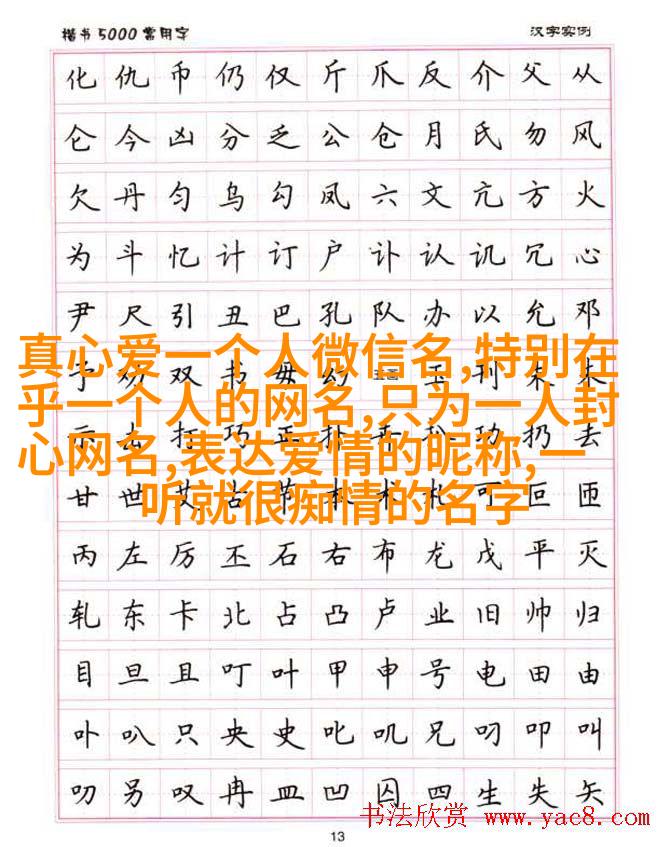 楷书5000常用字 汉字实例
化仇币仍仅斤爪反介父从
仑今凶分乏公仓月氏勿风
欠丹匀乌勾凤六文亢方火
为斗忆计订户讣认讥冗心
尹尺引丑巴孔队办以允邓
真心爱一个人微信名,特别在
乎一个人的网名,只为一人封
心网名,表达爱情的昵称,一
听就很痴情的名字
丙左厉丕石右布龙戊平灭
轧东卡北占凸卢业旧帅归
目旦且叮叶甲申号电田由
卟叭只央史叱叽兄叼叩叫
叨另叹冉皿凹囚四生失矢
书法欣赏 www.yac8.com
13